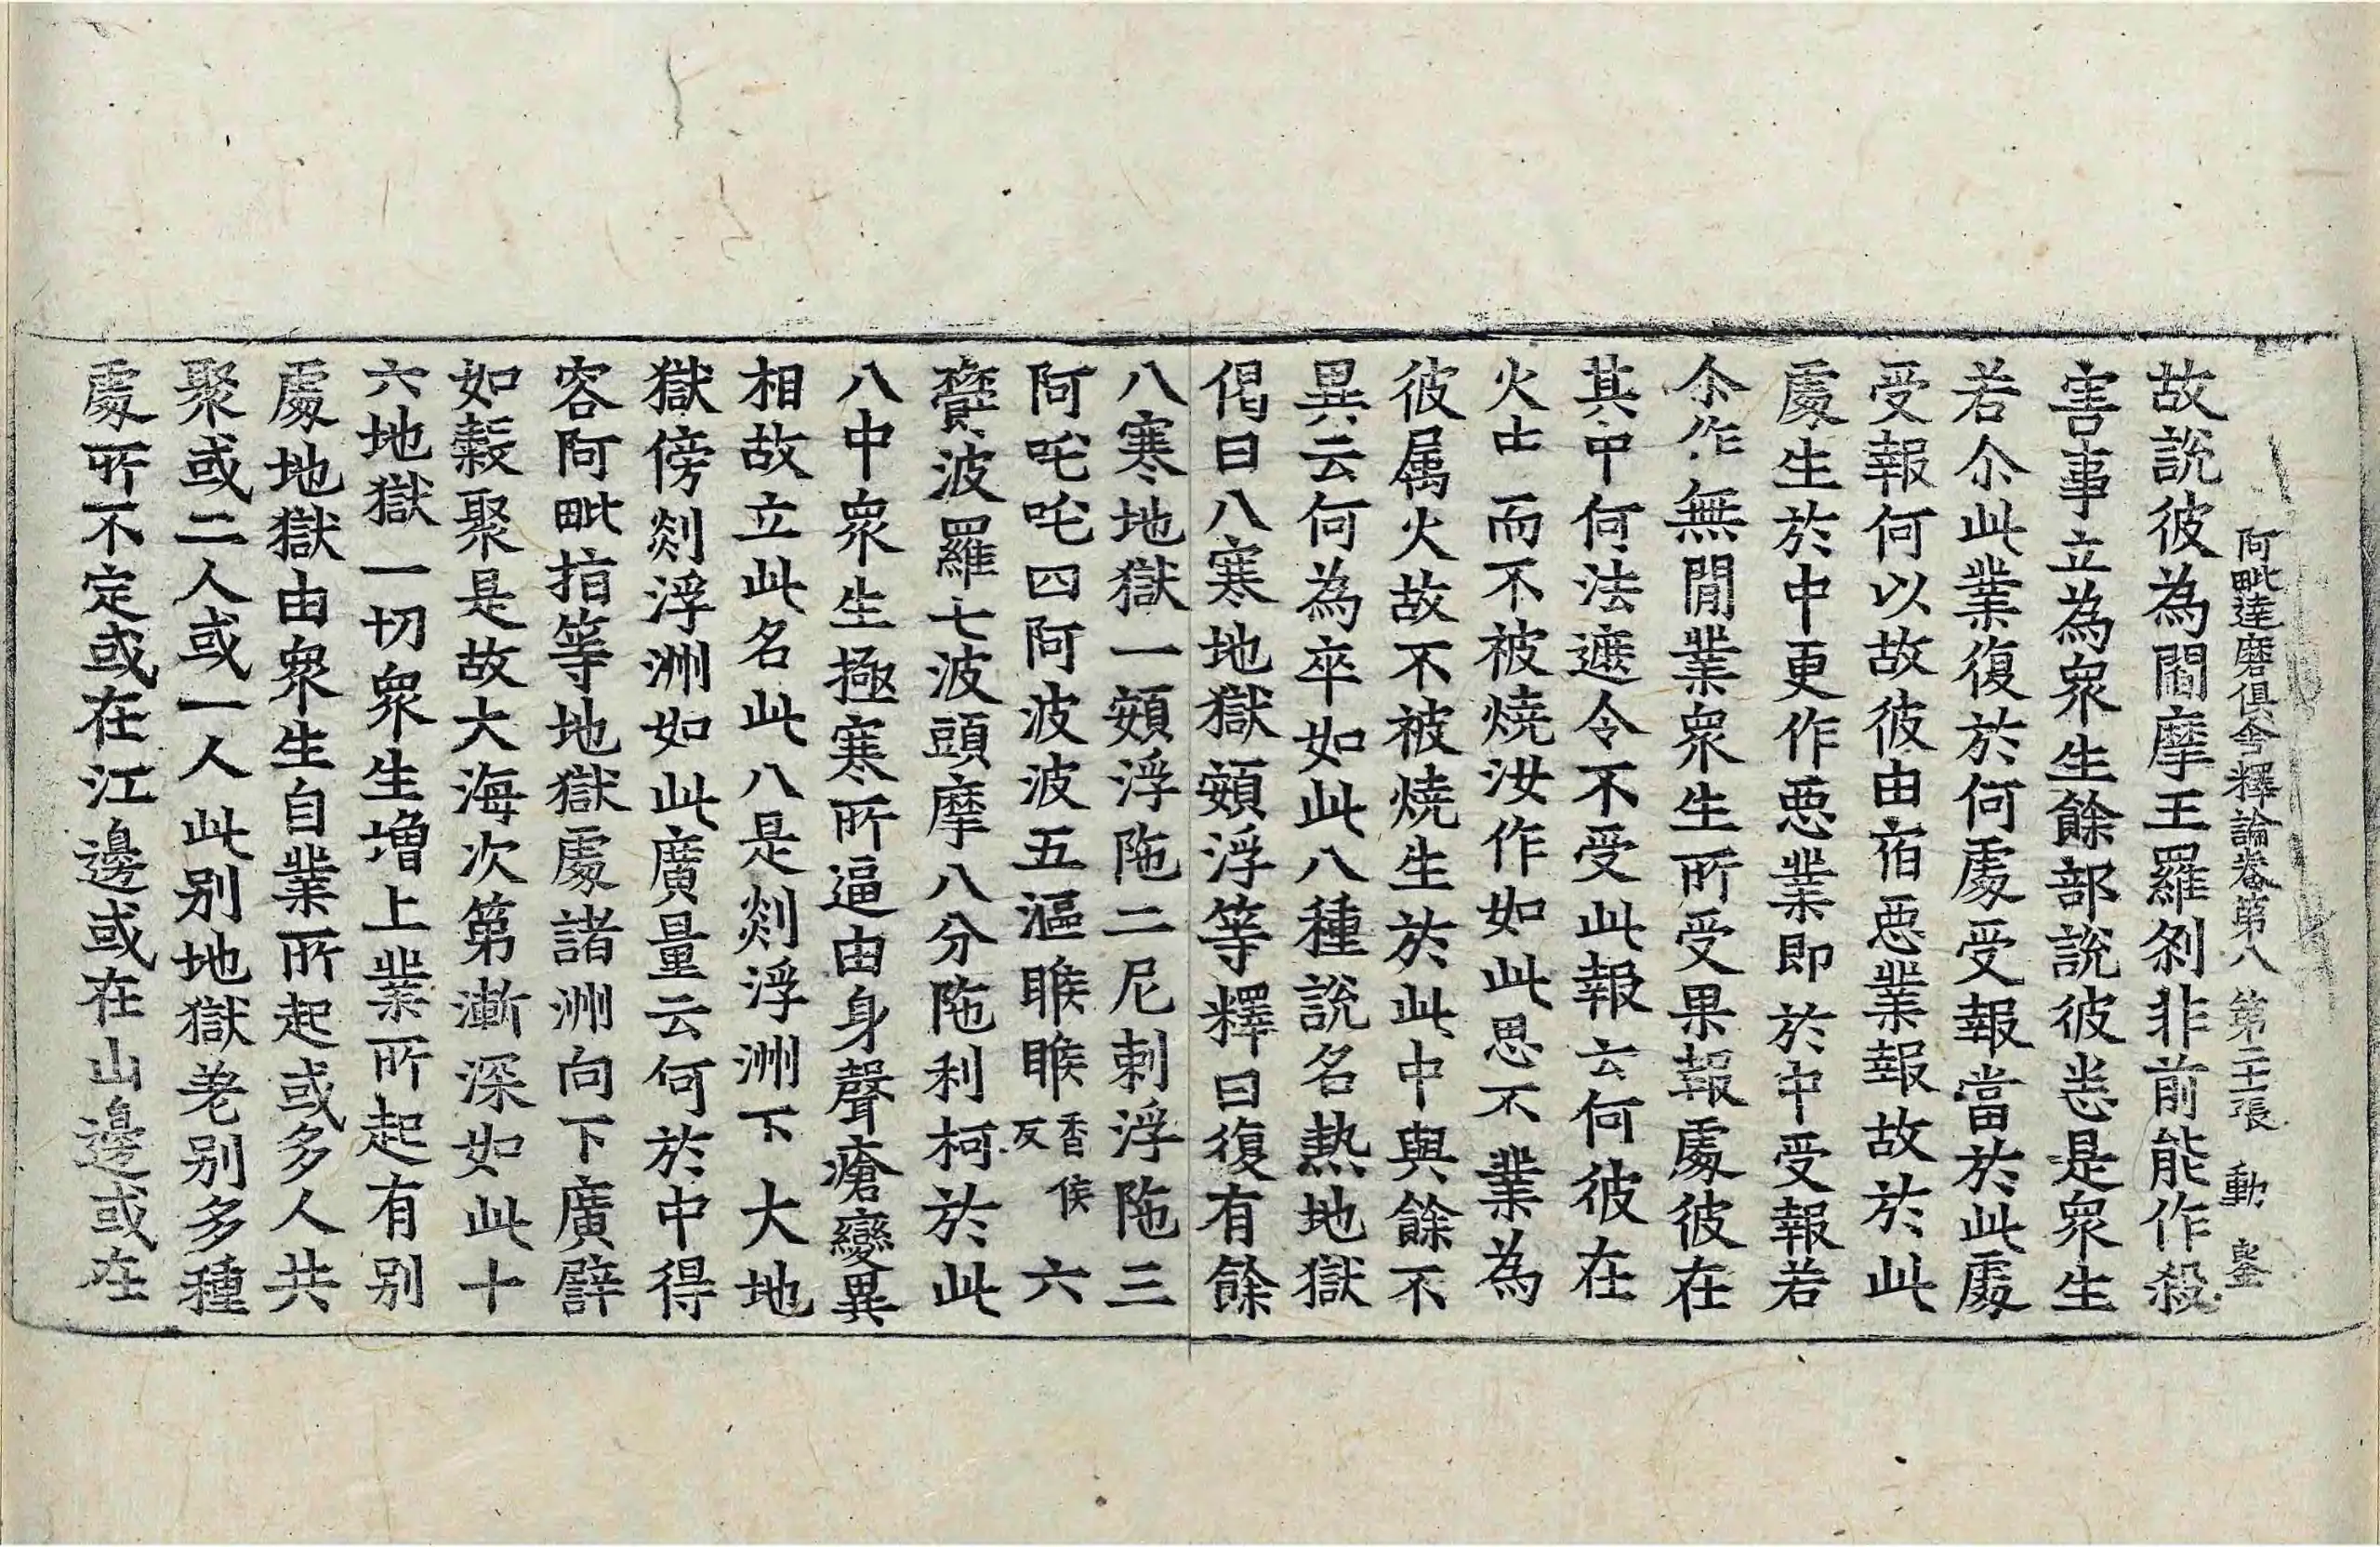 阿毗達磨俱舍釋論卷第八 第二十張 動
故說彼為閻摩王羅刹非前能作殺
害事立為衆生餘部說彼悉是衆生
若尒此業復於何處受報當於此處
受報何以故彼由宿惡業報故於此
處生於中更作惡業即於中受報若
尒作無間業衆生所受果報處彼在
其中何法遮令不受此報云何彼在
火中而不被燒汝作如此思不業為
彼属火故不被燒生於此中與餘不
異云何為卒如此八種說名熱地獄
偈曰八寒地獄頞浮等釋曰復有餘
八寒地獄一頞浮陁二尼剌浮陁三
阿吒吒四阿波波五漚睺睺香侯反六
欝波羅七波頭摩八分陁利柯於此
八中衆生極寒所逼由身聲瘡變異
相故立此名此八是剡浮洲下大地
獄傍剡浮洲如此廣量云何於中得
容阿毗指等地獄處諸洲向下廣譬
如穀聚是故大海次第漸深如此十
六地獄一切衆生增上業所起有别
處地獄由衆生自業所起或多人共
聚或二人或一人此别地獄差别多種
處所不定或在江邊或在山邊或在